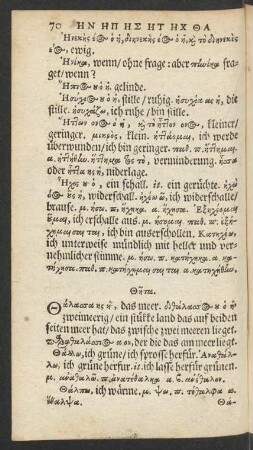 70 ΗΝ ΗΠ ΗΣ ΗΤ ΗΧ ΘΑ
Ἠνεκὴς έος ὁ ἡ, διηνεκὴς έος ὁ ἡ, κ̀ τὸ διηνεκὲς
έος, ewig.
Ἡνίκα, wenn/ ohne frage: aber πηνίκα fra-
get/ wenn?
Ἤπιος ὁ ἡ, gelinde.
Ἥσυχος ὁ ἡ, stille/ ruhig. ἡσυχία ας ἡ, die
stille. ἡσυχάζω, ich ruhe/ bin stille.
Ἥττων ονος ὁ ἡ, κ̀ τὸ ἧττον ονος, kleiner/
geringer. μικρὸς, klein. ἡττάομαι, ich werde
überwunden/ ich bin geringer. παθ. π. ἥττημαι,
α. ἡττήθην. ἥττημα ατος τὸ, verminderung. ἧττα
oder ἥττη ης ἡ, niderlage.
Ἦχος ου ὁ, ein schall. it. ein gerüchte. ἠχὼ
όος ους ἡ, widerschall. ἠχέω ῶ, ich widerschalle/
brause. μ. ήσω. π. ήχηκα. α. ήχησα. Ἐξηχέομαι
οῦμαι, ich erschalle aus. μ. ήσομαι. παθ. π. ἐξή-
χημαι σαι ται, ich bin auserschollen. Κατηχέω,
ich unterweise mündlich mit heller und ver-
nehmlicher stimme. μ. ήσω. π. κατήχηκα. α. κα-
τήχησα. παθ. π. κατήχημαι σαι ται. α. κατηχήθην.
Θῆτα.
Θάλασσα ης ἡ, das meer. διθάλασσος ου ὁ ἡ
zweimeerig/ ein stükke land das auf beiden
seiten meer hat/ das zwische zwei meeren lieget.
παραθαλάσσιος α ον, der die das am meer liegt.
Θάλλω, ich grüne/ ich sprosse herfür. Ἀναθάλ-
λω, ich grüne herfür. it. ich lasse herfür grünen.
μ. αναθαλῶ. π. ἀνατέθαλκα α. β. ἀνέθαλον.
Θάλπω, ich wärme. μ. ψω. π. τέθαλφα α.
ἔθαλψα.
Θά-